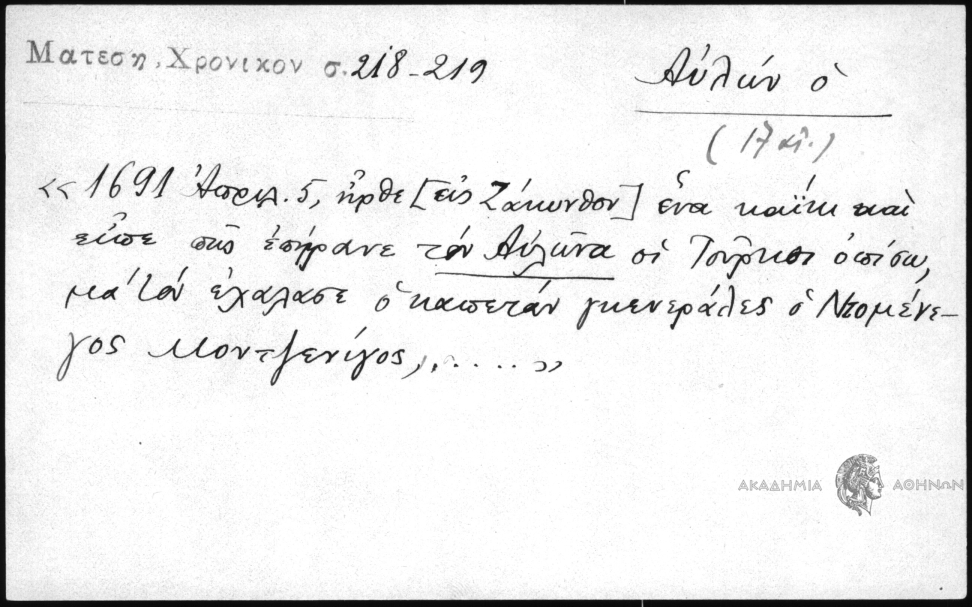 Ματεση, Χρονικον σ. 218-219
Αὐλών ὁ
(17 αἰ.)
«1691 Ἀπριλ. 5, ἦρθε [εἰς Ζάκυνθον] ἕνα καΐκι καὶ
εἶπε πῶς ἐπήρανε τὸν Αὐλῶνα οἱ Τοῦρκοι ὀπίσω,
μὰ τὸν ἐχάλασε ὁ καπετὰν γκενεράλες ὁ Ντομένε-
γος Μοντζενίγος, ......»
ΑΚΑΔΗΜΙΑ ΑΘΗΝΩΝ